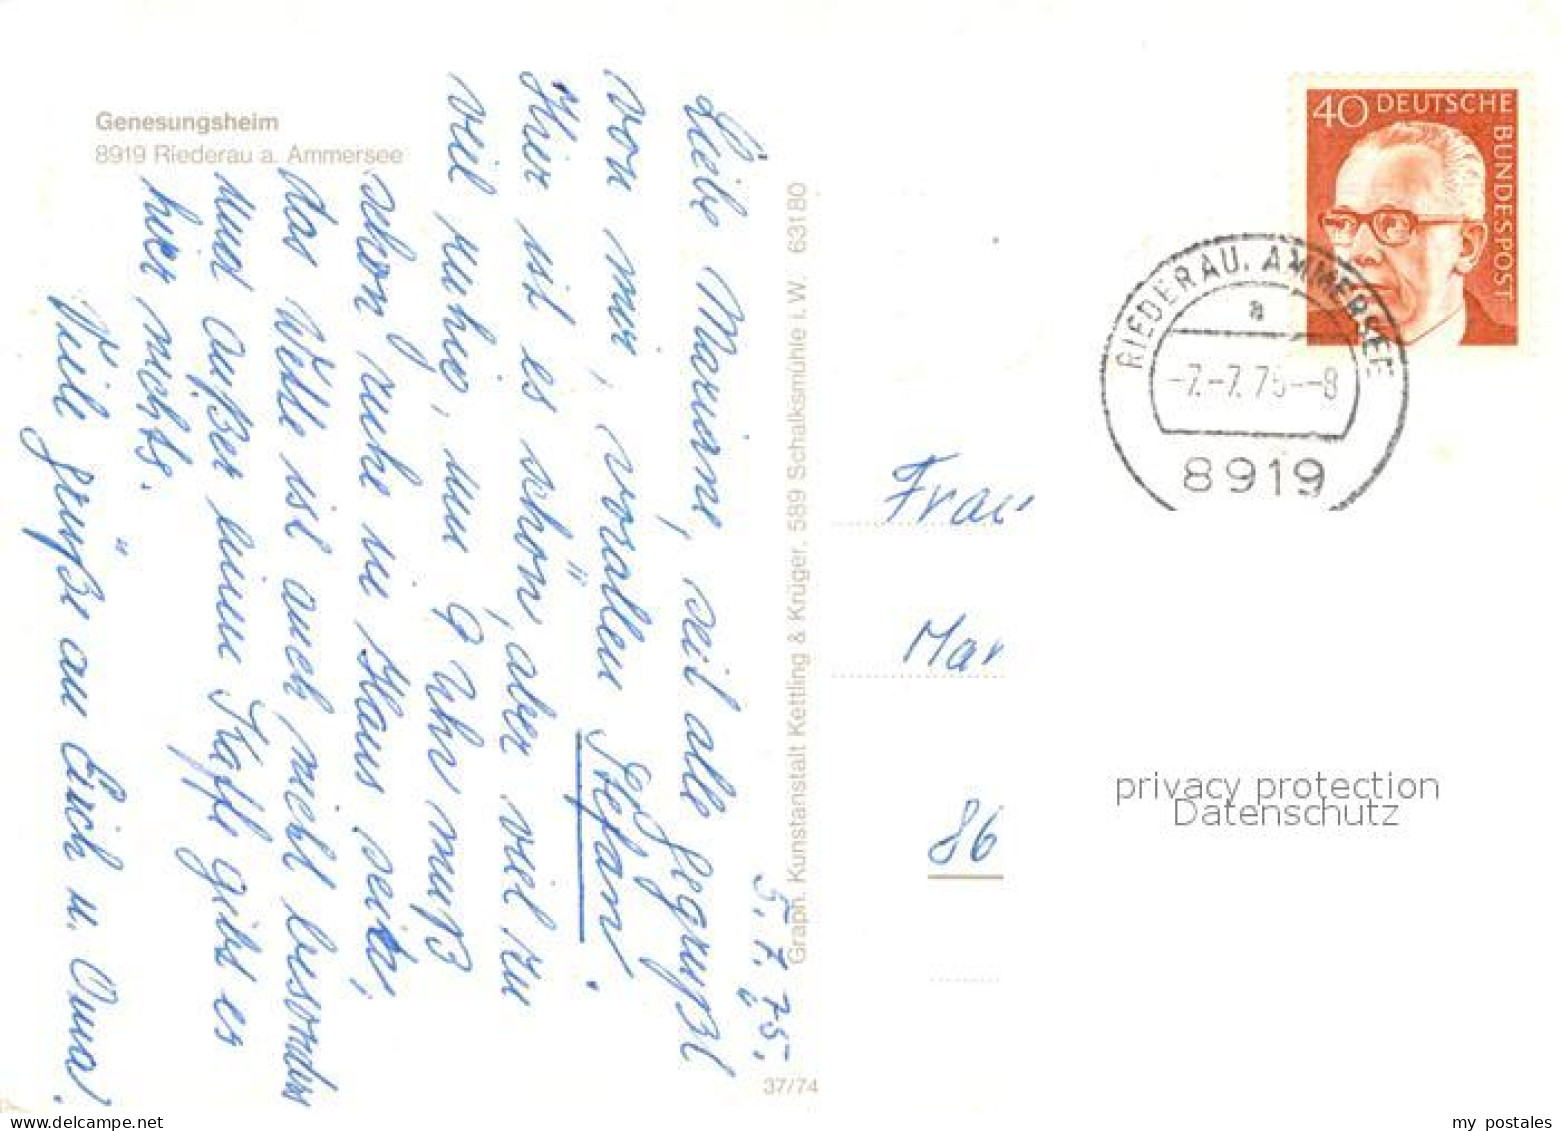 Genesungsheim
8919 Riederau a. Ammersee
5.7.75.
Liebe Mariane, seil alle gegrüßt
von mir, vorallem Stefan.
Hier ist es schön, aber viel zu
viel ruhig, um 9 Uhr muß
schon ruhe im Haus sein,
das Wette ist auch nicht besonders
und außer eine Kaffe gibt es
hier nichts.
Viele grüße an Erich u. Oma.
Graph. Kunstanstalt Kettling & Krüger, 589 Schalksmühle i. W. 63180
37/74
40 DEUTSCHE BUNDESPOST
RIEDERAU, AMMERSEE
a
-7.-7.75--8
8919
Frau
Mar
86
privacy protection
Datenschutz
my postales